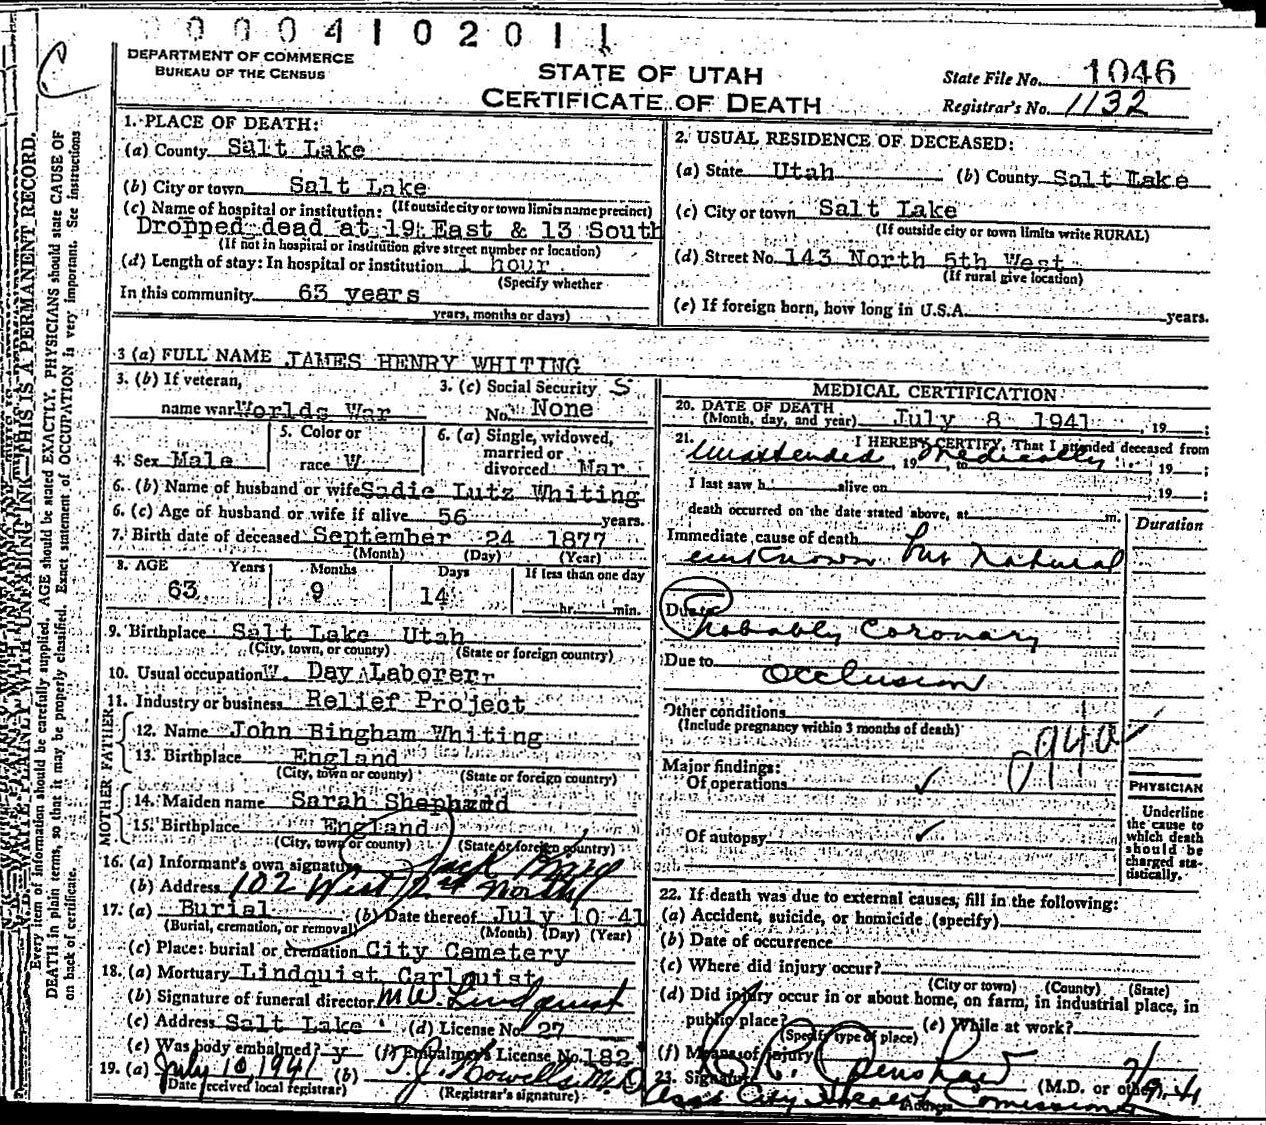 0004102011
C
DEPARTMENT OF COMMERCE
BUREAU OF THE CENSUS
STATE OF UTAH
CERTIFICATE OF DEATH
State File No. 1046
Registrar's No. 1132
N. B.—WRITE PLAINLY WITH UNFADING INK—THIS IS A PERMANENT RECORD.
Every item of information should be carefully supplied. AGE should be stated EXACTLY. PHYSICIANS should state CAUSE OF
DEATH in plain terms, so that it may be properly classified. Exact statement of OCCUPATION is very important. See instructions
on back of certificate.
1. PLACE OF DEATH:
(a) County Salt Lake
(b) City or town Salt Lake
(If outside city or town limits name precinct)
(c) Name of hospital or institution:
Dropped dead at 19 East & 13 South
(If not in hospital or institution give street number or location)
(d) Length of stay: In hospital or institution 1 hour
(Specify whether
In this community 63 years
years, months or days)
2. USUAL RESIDENCE OF DECEASED:
(a) State Utah (b) County Salt Lake
(c) City or town Salt Lake
(If outside city or town limits write RURAL)
(d) Street No. 143 North 5th West
(If rural give location)
(e) If foreign born, how long in U.S.A. years.
3 (a) FULL NAME JAMES HENRY WHITING
3. (b) If veteran,
name war Worlds War
3. (c) Social Security S
No. None
4. Sex Male
5. Color or
race W.
6. (a) Single, widowed,
married or
divorced Mar
6. (b) Name of husband or wife Sadie Lutz Whiting
6. (c) Age of husband or wife if alive 56 years.
7. Birth date of deceased September 24 1877
(Month) (Day) (Year)
8. AGE Years Months Days If less than one day
63 9 14 hr. min.
9. Birthplace Salt Lake Utah
(City, town, or county) (State or foreign country)
10. Usual occupation W. Day Laborer
11. Industry or business Relief Project
FATHER
12. Name John Bingham Whiting
13. Birthplace England
(City, town or county) (State or foreign country)
MOTHER
14. Maiden name Sarah Shephard
15. Birthplace England
(City, town or county) (State or foreign country)
16. (a) Informant's own signature Jack
(b) Address 102 West 2nd North
17. (a) Burial (b) Date thereof July 10-41
(Burial, cremation, or removal) (Month) (Day) (Year)
(c) Place: burial or cremation City Cemetery
18. (a) Mortuary Lindquist Carlquist
(b) Signature of funeral director M.W. Lindquist
(c) Address Salt Lake (d) License No. 27
(e) Was body embalmed? y (f) Embalmer's License No. 182
19. (a) July 10, 1941 (b) T. J. Howells, M.D.
(Date received local registrar) (Registrar's signature)
MEDICAL CERTIFICATION
20. DATE OF DEATH
(Month, day, and year) July 8 1941, 19 ;
21. I HEREBY CERTIFY, That I attended deceased from
Unattended, 19 to Medically 19 ;
I last saw h alive on 19 ;
death occurred on the date stated above, at m.
Duration
Immediate cause of death
unknown but Natural
Due to
Probably Coronary
Due to Occlusion
Other conditions
(Include pregnancy within 3 months of death)
094a ✓
Major findings:
Of operations ✓
Of autopsy ✓
PHYSICIAN
Underline
the cause to
which death
should be
charged sta-
tistically.
22. If death was due to external causes, fill in the following:
(a) Accident, suicide, or homicide (specify)
(b) Date of occurrence
(c) Where did injury occur?
(City or town) (County) (State)
(d) Did injury occur in or about home, on farm, in industrial place, in
public place? (e) While at work?
(Specify type of place)
(f) Means of injury
23. Signature (M.D. or other)
Address Asst City Health Comissioner